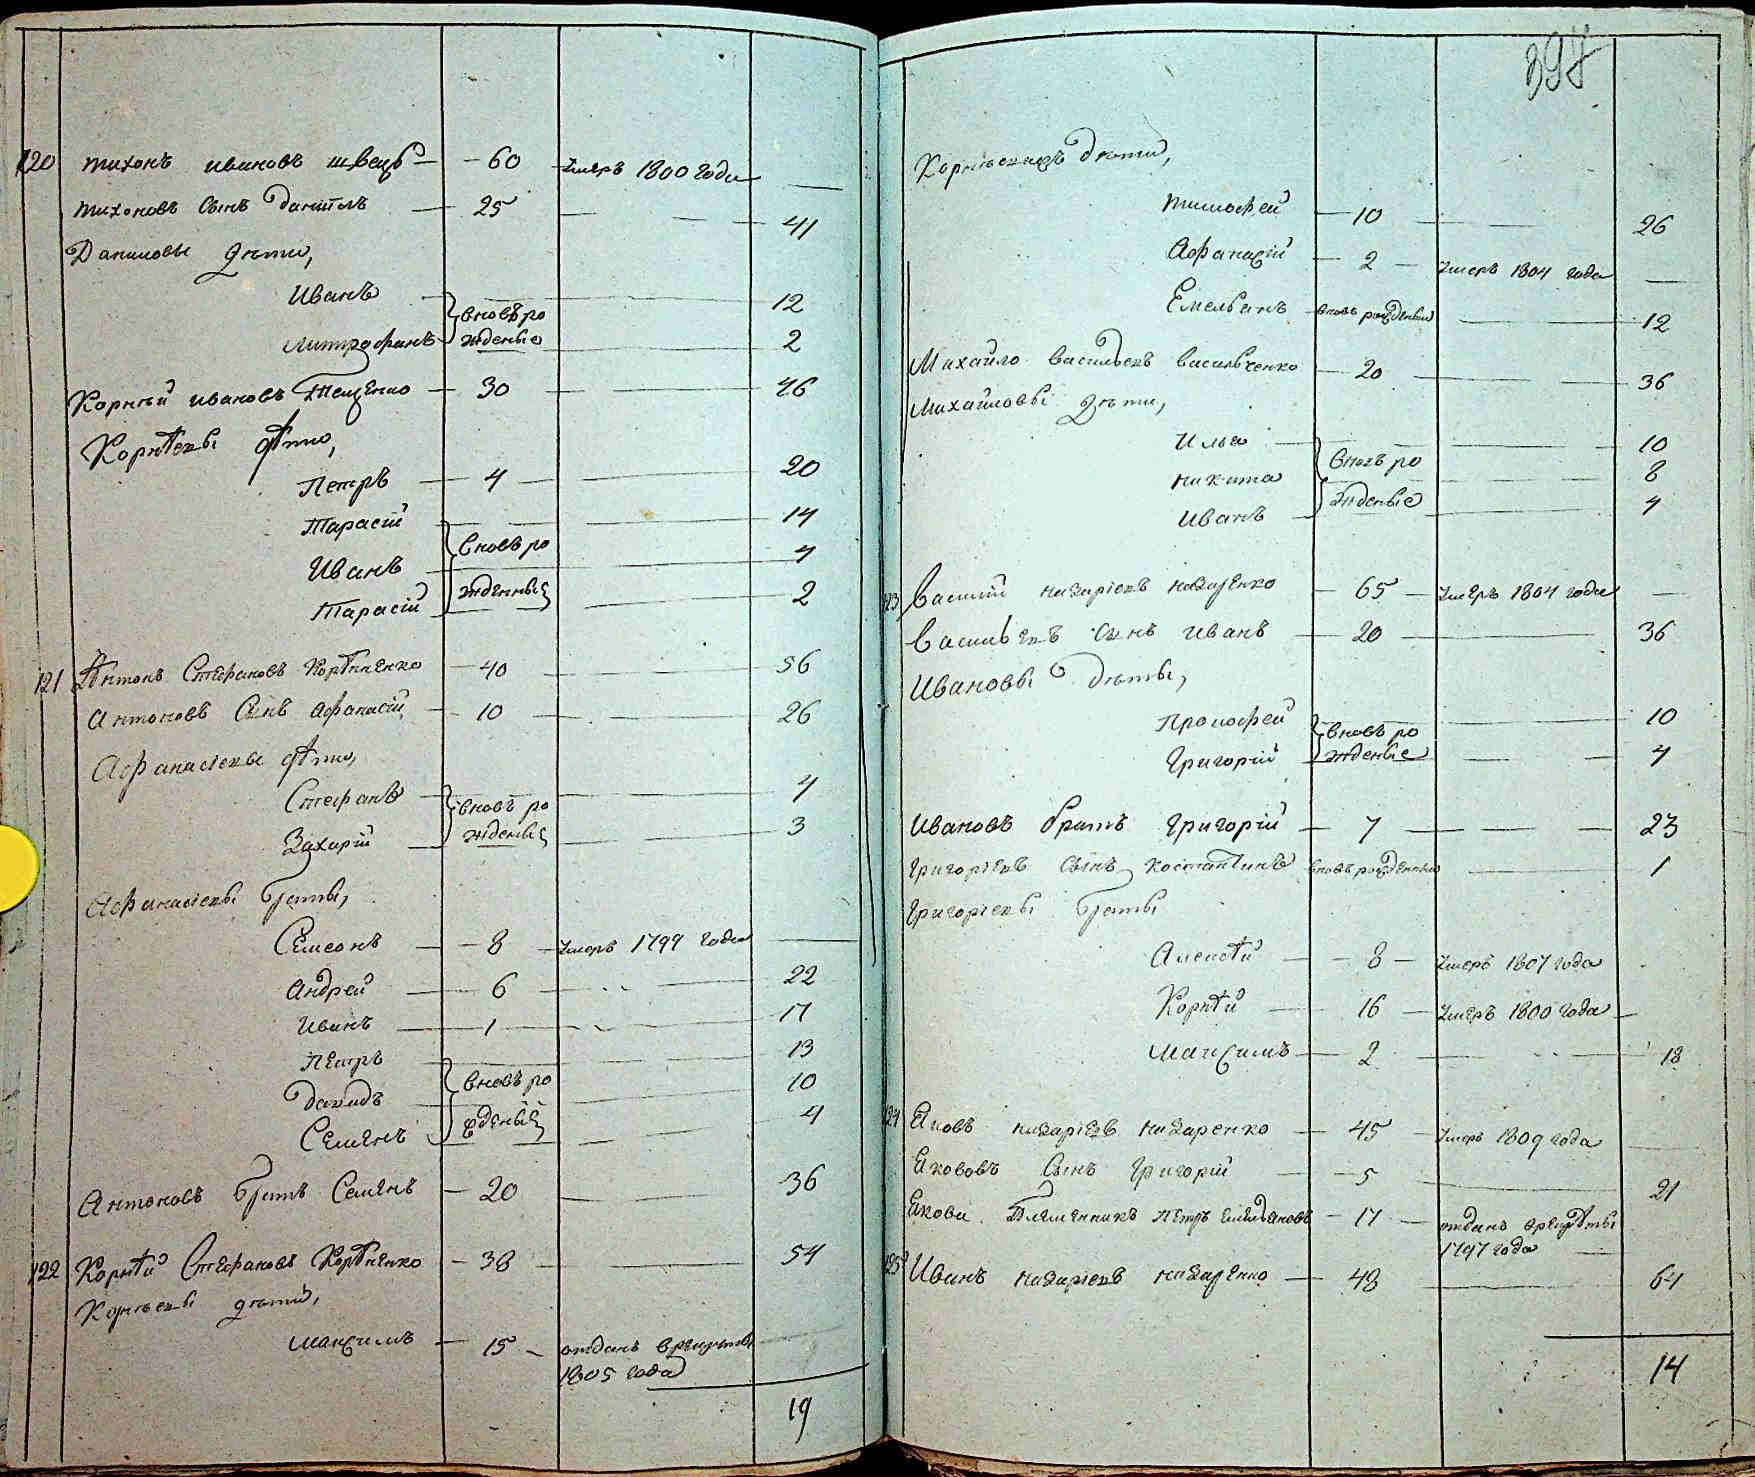 120 Тихонъ Ивановъ Швецъ 60 умеръ 1800 года
Тихоновъ сынъ Данiилъ 25 41
Даниловы дѣти,
Иванъ 12
вновь ро
Митрофанъ жденые 2
Корнѣй Ивановъ 30 46
Корнѣевы дѣти,
Петръ 4 20
Тарасiй 14
вновь ро
Иванъ 4
жденныя
Тарасiй 2
121 Антонъ Стефановъ Корѣненко 40 56
Антоновъ сынъ Афанасiй 10 26
Афанасiевы дѣти,
Стефанъ вновь ро 4
Захарiй жденыя 3
Афанасiевы браты,
Семеонъ 8 умеръ 1799 года
Андрей 6 22
Иванъ 1 17
Петръ 13
Давидъ вновь ро 10
Семенъ 4
Антоновъ братъ Семенъ 20 36
122 Корнѣй Стефановъ Корѣненко 38 54
Корнѣевы дѣтй,
Максимъ 15 отданъ
1805 года
19
397
дѣти,
Тимофей 10 26
Афанасiй 2 умеръ 1804 года
Емельянъ вновь рожденый 12
Михайло Васильевъ Васильченко 20 36
Михайловы дѣти,
Илья 10
вновь ро
Никита 8
жденые
Иванъ 4
123 Василий Назарiевъ Назаренко 65 умеръ 1804 года
Васильевъ сынъ Иванъ 20 36
Ивановы дѣты,
Прокофей вновь ро 10
Григорiй жденые 4
Ивановъ братъ Григорiй 7 23
Григорiевъ сынъ Костантинъ вновь рожденный 1
Григорiевы браты
Алексѣй 8 умеръ 1807 года
Корнѣй 16 умеръ 1800 года
Максимъ 2 18
124 Яковъ Назарiевъ Назаренко 45 умеръ 1809 года
Якововъ сынъ Григорiй 5 21
Якова племенникъ Петръ Емельяновъ 17 отданъ
1797 года
125 Иванъ Назарiевъ Назаренко 48 64
14